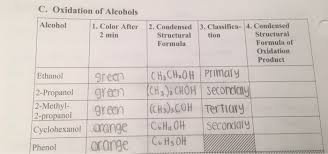 C. Oxidation of Alcohols
Alcohol 1. Color After 2. Condensed 3. Classifica- 4. Condensed
2 min Structural tion Structural
Formula Formula of
Oxidation
Product
Ethanol green CH₃CH₂OH Primary
2-Propanol green (CH₃)₂CHOH secondary
2-Methyl-
2-propanol green (CH₃)₃COH Tertiary
Cyclohexanol orange OH secondary
Phenol orange C₆H₅OH